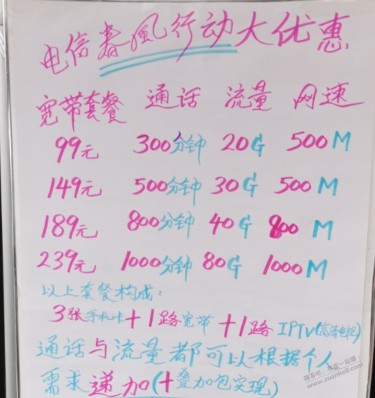 电信春風行动大优惠
宽带套餐 通话 流量 网速
99元 300分钟 20G 500M
149元 500分钟 30G 500M
189元 800分钟 40G 800M
239元 1000分钟 80G 1000M
以上套餐构成:
3张手机卡+1路宽带+1路IPTV(高清电视)
通话与流量都可以根据个人
需求递加(+叠加包实现)